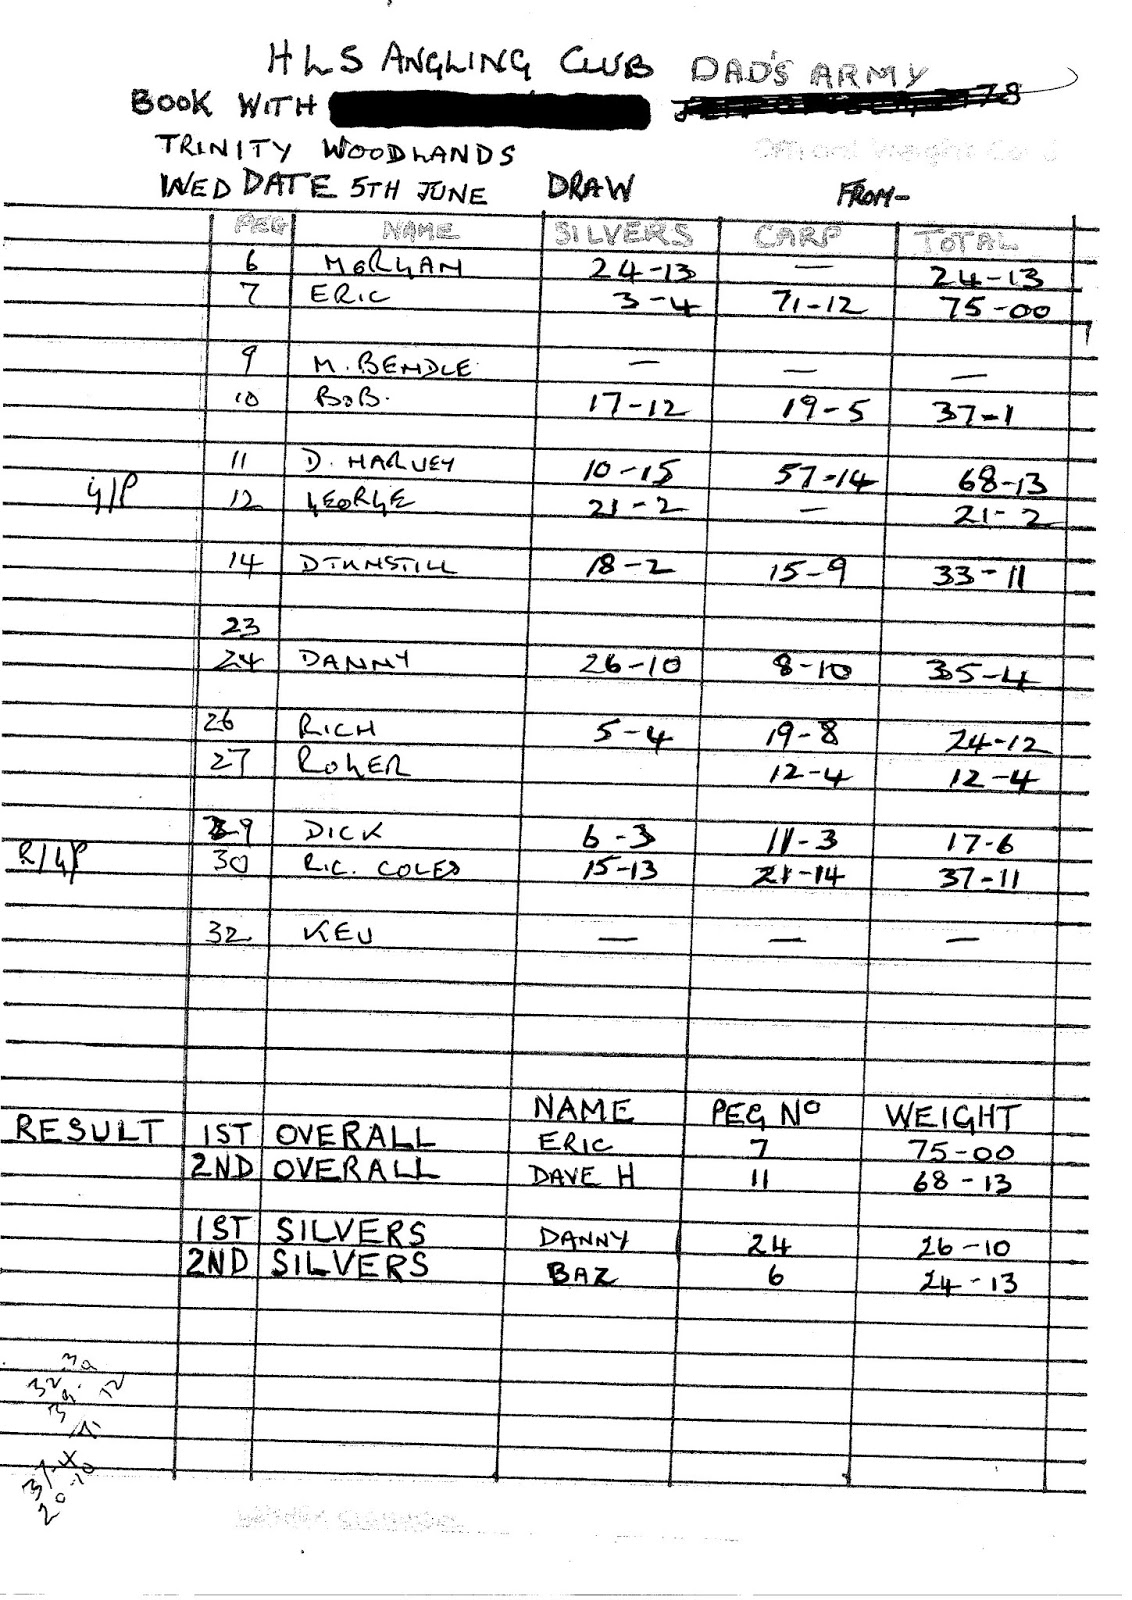 HLS ANGLING CLUB DAD'S ARMY
BOOK WITH
TRINITY WOODLANDS
WED DATE 5TH JUNE DRAW FROM-
PEG NAME SILVERS CARP TOTAL
6 MORGAN 24-13 — 24-13
7 ERIC 3-4 71-12 75-00
9 M. BENDLE — — —
10 BOB. 17-12 19-5 37-1
11 D. HARVEY 10-15 57-14 68-13
G/P 12 GEORGE 21-2 — 21-2
14 DTUNSTILL 18-2 15-9 33-11
23
24 DANNY 26-10 8-10 35-4
26 RICH 5-4 19-8 24-12
27 ROGER 12-4 12-4
29 DICK 6-3 11-3 17-6
R/GP 30 RIC. COLES 15-13 21-14 37-11
32 KEV — — —
NAME PEG NO WEIGHT
RESULT 1ST OVERALL ERIC 7 75-00
2ND OVERALL DAVE H 11 68-13
1ST SILVERS DANNY 24 26-10
2ND SILVERS BAZ 6 24-13
37-4
20-10